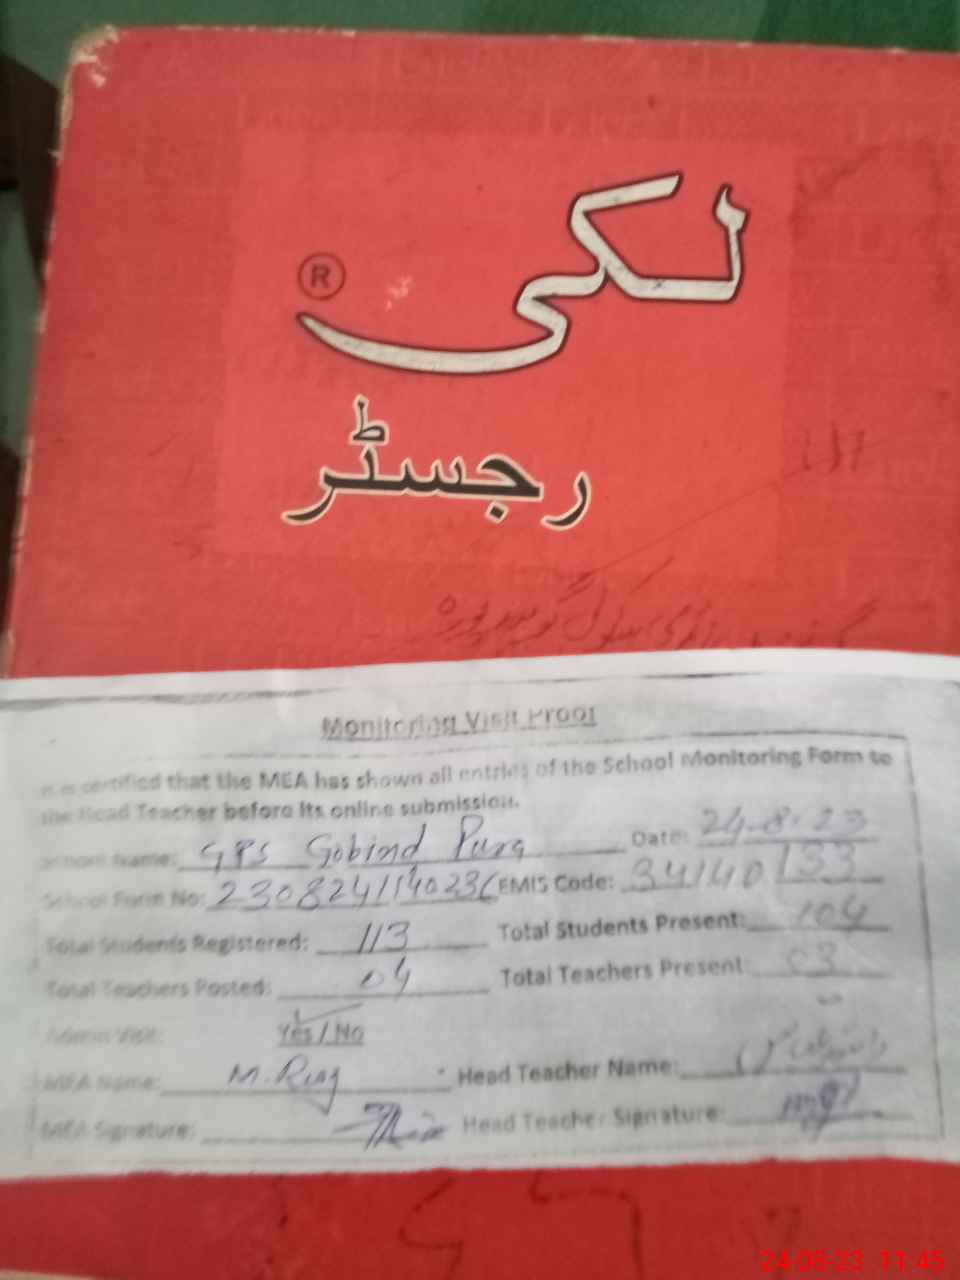 لکی
®
رجسٹر
Monitoring Visit Proof
It is certified that the MEA has shown all entries of the School Monitoring Form to
the Head Teacher before its online submission.
School Name: GPS Gobind Pura Date: 24-8-23
School Form No: EMIS Code: 34140133
Total Students Registered: 113 Total Students Present: 104
Total Teachers Posted: 04 Total Teachers Present: 03
Admin Visit: Yes / No
MEA Name: M. Head Teacher Name:
MEA Signature: Head Teacher Signature:
24-08-23 11:45